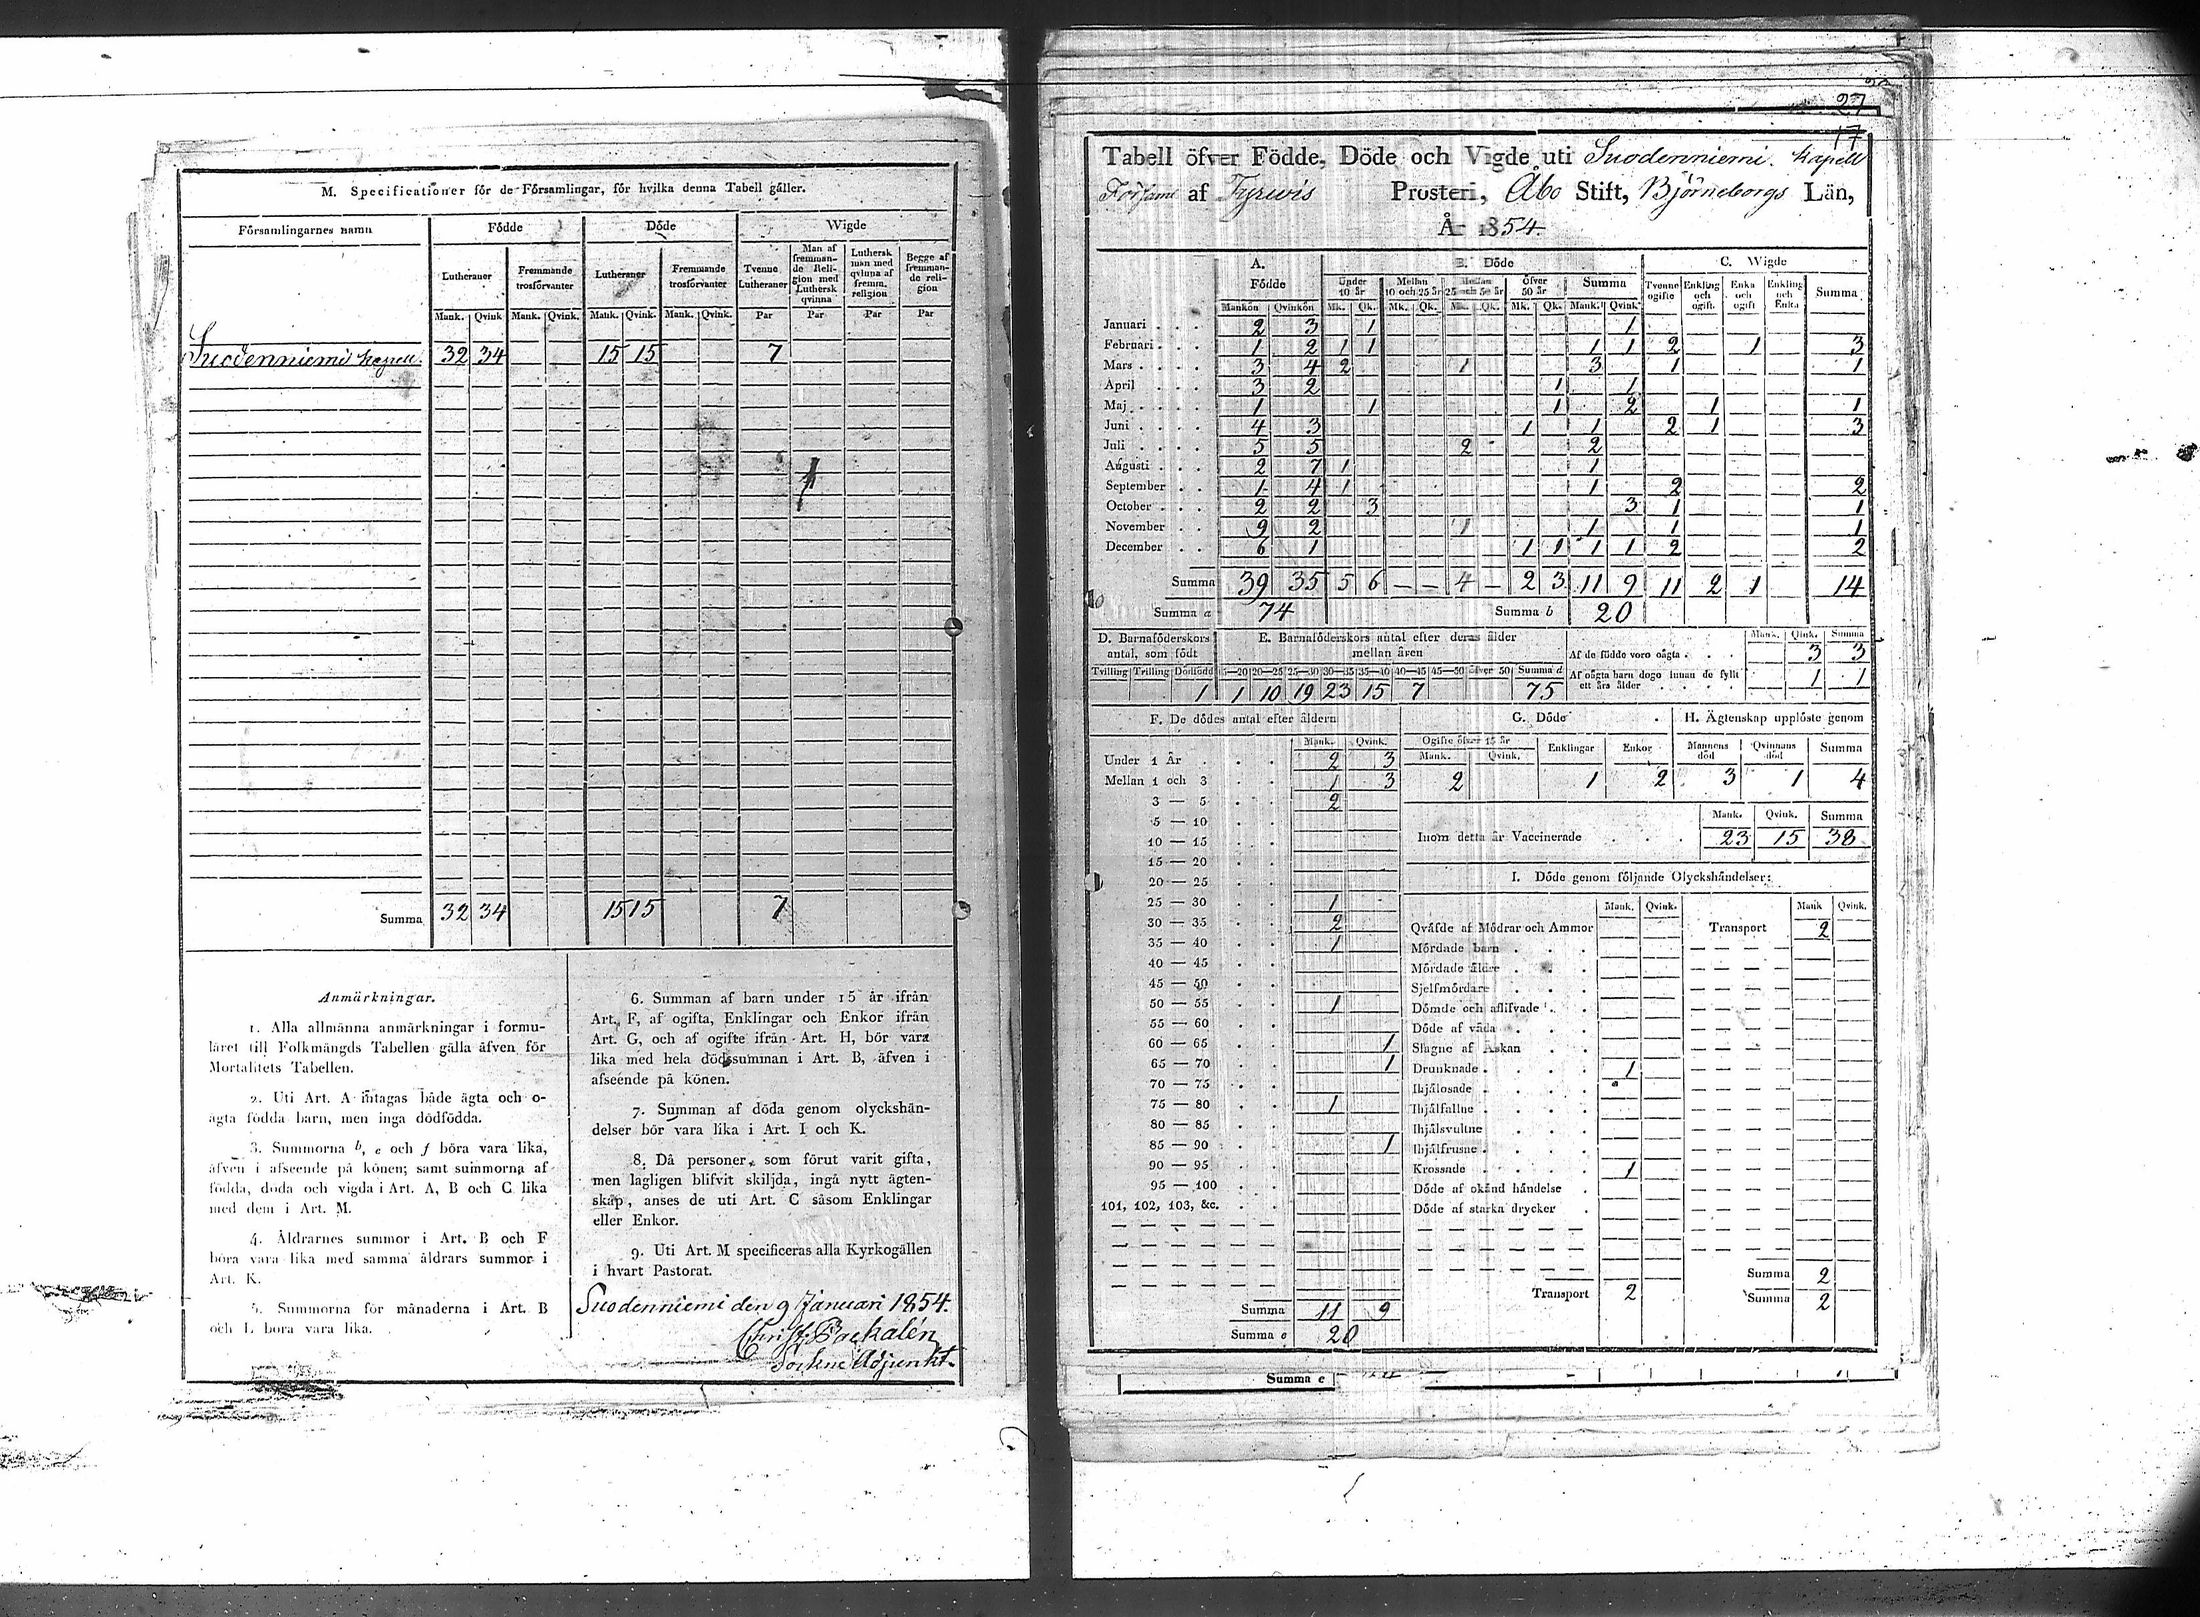 M. Specificationer för de Församlingar, för hvilka denna Tabell gäller.
Församlingarnes namn | Födde | Döde | Wigde
Lutheraner | Fremmande trosförvanter | Lutheraner | Fremmande trosförvanter | Tvenne Lutheraner | Man af fremmande Religion med Luthersk qvinna | Luthersk man med qvinna af fremm. religion | Begge af fremmande religion
Mank. | Qvink | Mank. | Qvink. | Mank. | Qvink. | Mank. | Qvink. | Par | Par | Par | Par
Suodenniemi kapell. 32 34 15 15 7
Summa 32 34 15 15 7
Anmärkningar.
1. Alla allmänna anmärkningar i formu-
läret till Folkmängds Tabellen gälla äfven för
Mortalitets Tabellen.
2. Uti Art. A intagas både ägta och o-
ägta födda barn, men inga dödfödda.
3. Summorna b, e och f böra vara lika,
äfven i afseende på könen; samt summorna af
födda, döda och vigda i Art. A, B och C lika
med dem i Art. M.
4. Åldrarnes summor i Art. B och F
böra vara lika med samma åldrars summor i
Art. K.
5. Summorna för månaderna i Art. B
och L böra vara lika.
6. Summan af barn under 15 år ifrån
Art. F, af ogifta, Enklingar och Enkor ifrån
Art. G, och af ogifte ifrån Art. H, bör vara
lika med hela dödssumman i Art. B, äfven i
afseende på könen.
7. Summan af döda genom olyckshän-
delser bör vara lika i Art. I och K.
8. Då personer, som förut varit gifta,
men lagligen blifvit skiljda, ingå nytt ägten-
skap, anses de uti Art. C såsom Enklingar
eller Enkor.
9. Uti Art. M specificeras alla Kyrkogällen
i hvart Pastorat.
Suodenniemi den 9 Januari 1854.
Christ. Backalén
Sockne Adjunkt.
27
17
Tabell öfver Födde, Döde och Vigde uti Suodenniemi. Kapell
Församl af Tyrvis Prosteri, Åbo Stift, Björneborgs Län,
År 1854.
A. Födde | B. Döde | C. Wigde
Under 10 år | Mellan 10 och 25 år | Mellan 25 och 50 år | Öfver 50 år | Summa | Tvenne ogifte | Enkling och ogift. | Enka och ogift | Enkling och Enka | Summa
Mankön | Qvinkön | Mk. | Qk. | Mk. | Qk. | Mk. | Qk. | Mk. | Qk. | Mank. | Qvink.
Januari 2 3 1 1
Februari 1 2 1 1 1 1 2 1 3
Mars 3 4 2 1 3 1 1
April 3 2 1 1
Maj 1 1 1 2 1 1
Juni 4 3 1 1 2 1 3
Juli 5 5 2 2
Augusti 2 7 1 1
September 1 4 1 1 2 2
October 2 2 3 3 1 1
November 9 2 1 1 1 1
December 6 1 1 1 1 1 2 2
Summa 39 35 5 6 — — 4 — 2 3 11 9 11 2 1 14
Summa a 74 Summa b 20
D. Barnaföderskors antal, som födt
Tvilling | Trilling | Dödfödd
1
E. Barnaföderskors antal efter deras ålder mellan åren
15—20 | 20—25 | 25—30 | 30—35 | 35—40 | 40—45 | 45—50 | öfver 50 | Summa d
1 10 19 23 15 7 75
Mank. | Qink. | Summa
Af de födde voro oägta 3 3
Af oägta barn dogo innan de fyllt ett års ålder 1 1
F. De dödes antal efter åldern
Mank. | Qvink.
Under 1 År 2 3
Mellan 1 och 3 1 3
3 — 5 2
5 — 10
10 — 15
15 — 20
20 — 25
25 — 30 1
30 — 35 2
35 — 40 1
40 — 45
45 — 50
50 — 55 1
55 — 60
60 — 65 1
65 — 70 1
70 — 75
75 — 80 1
80 — 85
85 — 90 1
90 — 95
95 — 100
101, 102, 103, &c.
Summa 11 9
Summa e 20
G. Döde
Ogifte öfver 15 år | Enklingar | Enkor
Mank. | Qvink.
2 1 2
H. Ägtenskap upplöste genom
Mannens död | Qvinnans död | Summa
3 1 4
Mank. | Qvink. | Summa
Inom detta år Vaccinerade 23 15 38
I. Döde genom följande Olyckshändelser:
Mank. | Qvink. | Mank | Qvink.
Qväfde af Mödrar och Ammor
Transport 2
Mördade barn
Mördade äldre
Sjelfmördare
Dömde och aflifvade
Döde af våda
Slagne af Åskan
Drunknade 1
Ihjälosade
Ihjälfallne
Ihjälsvultne
Ihjälfrusne
Krossade 1
Döde af okänd händelse
Döde af starka drycker
Transport 2
Summa 2
Summa 2
Summa e